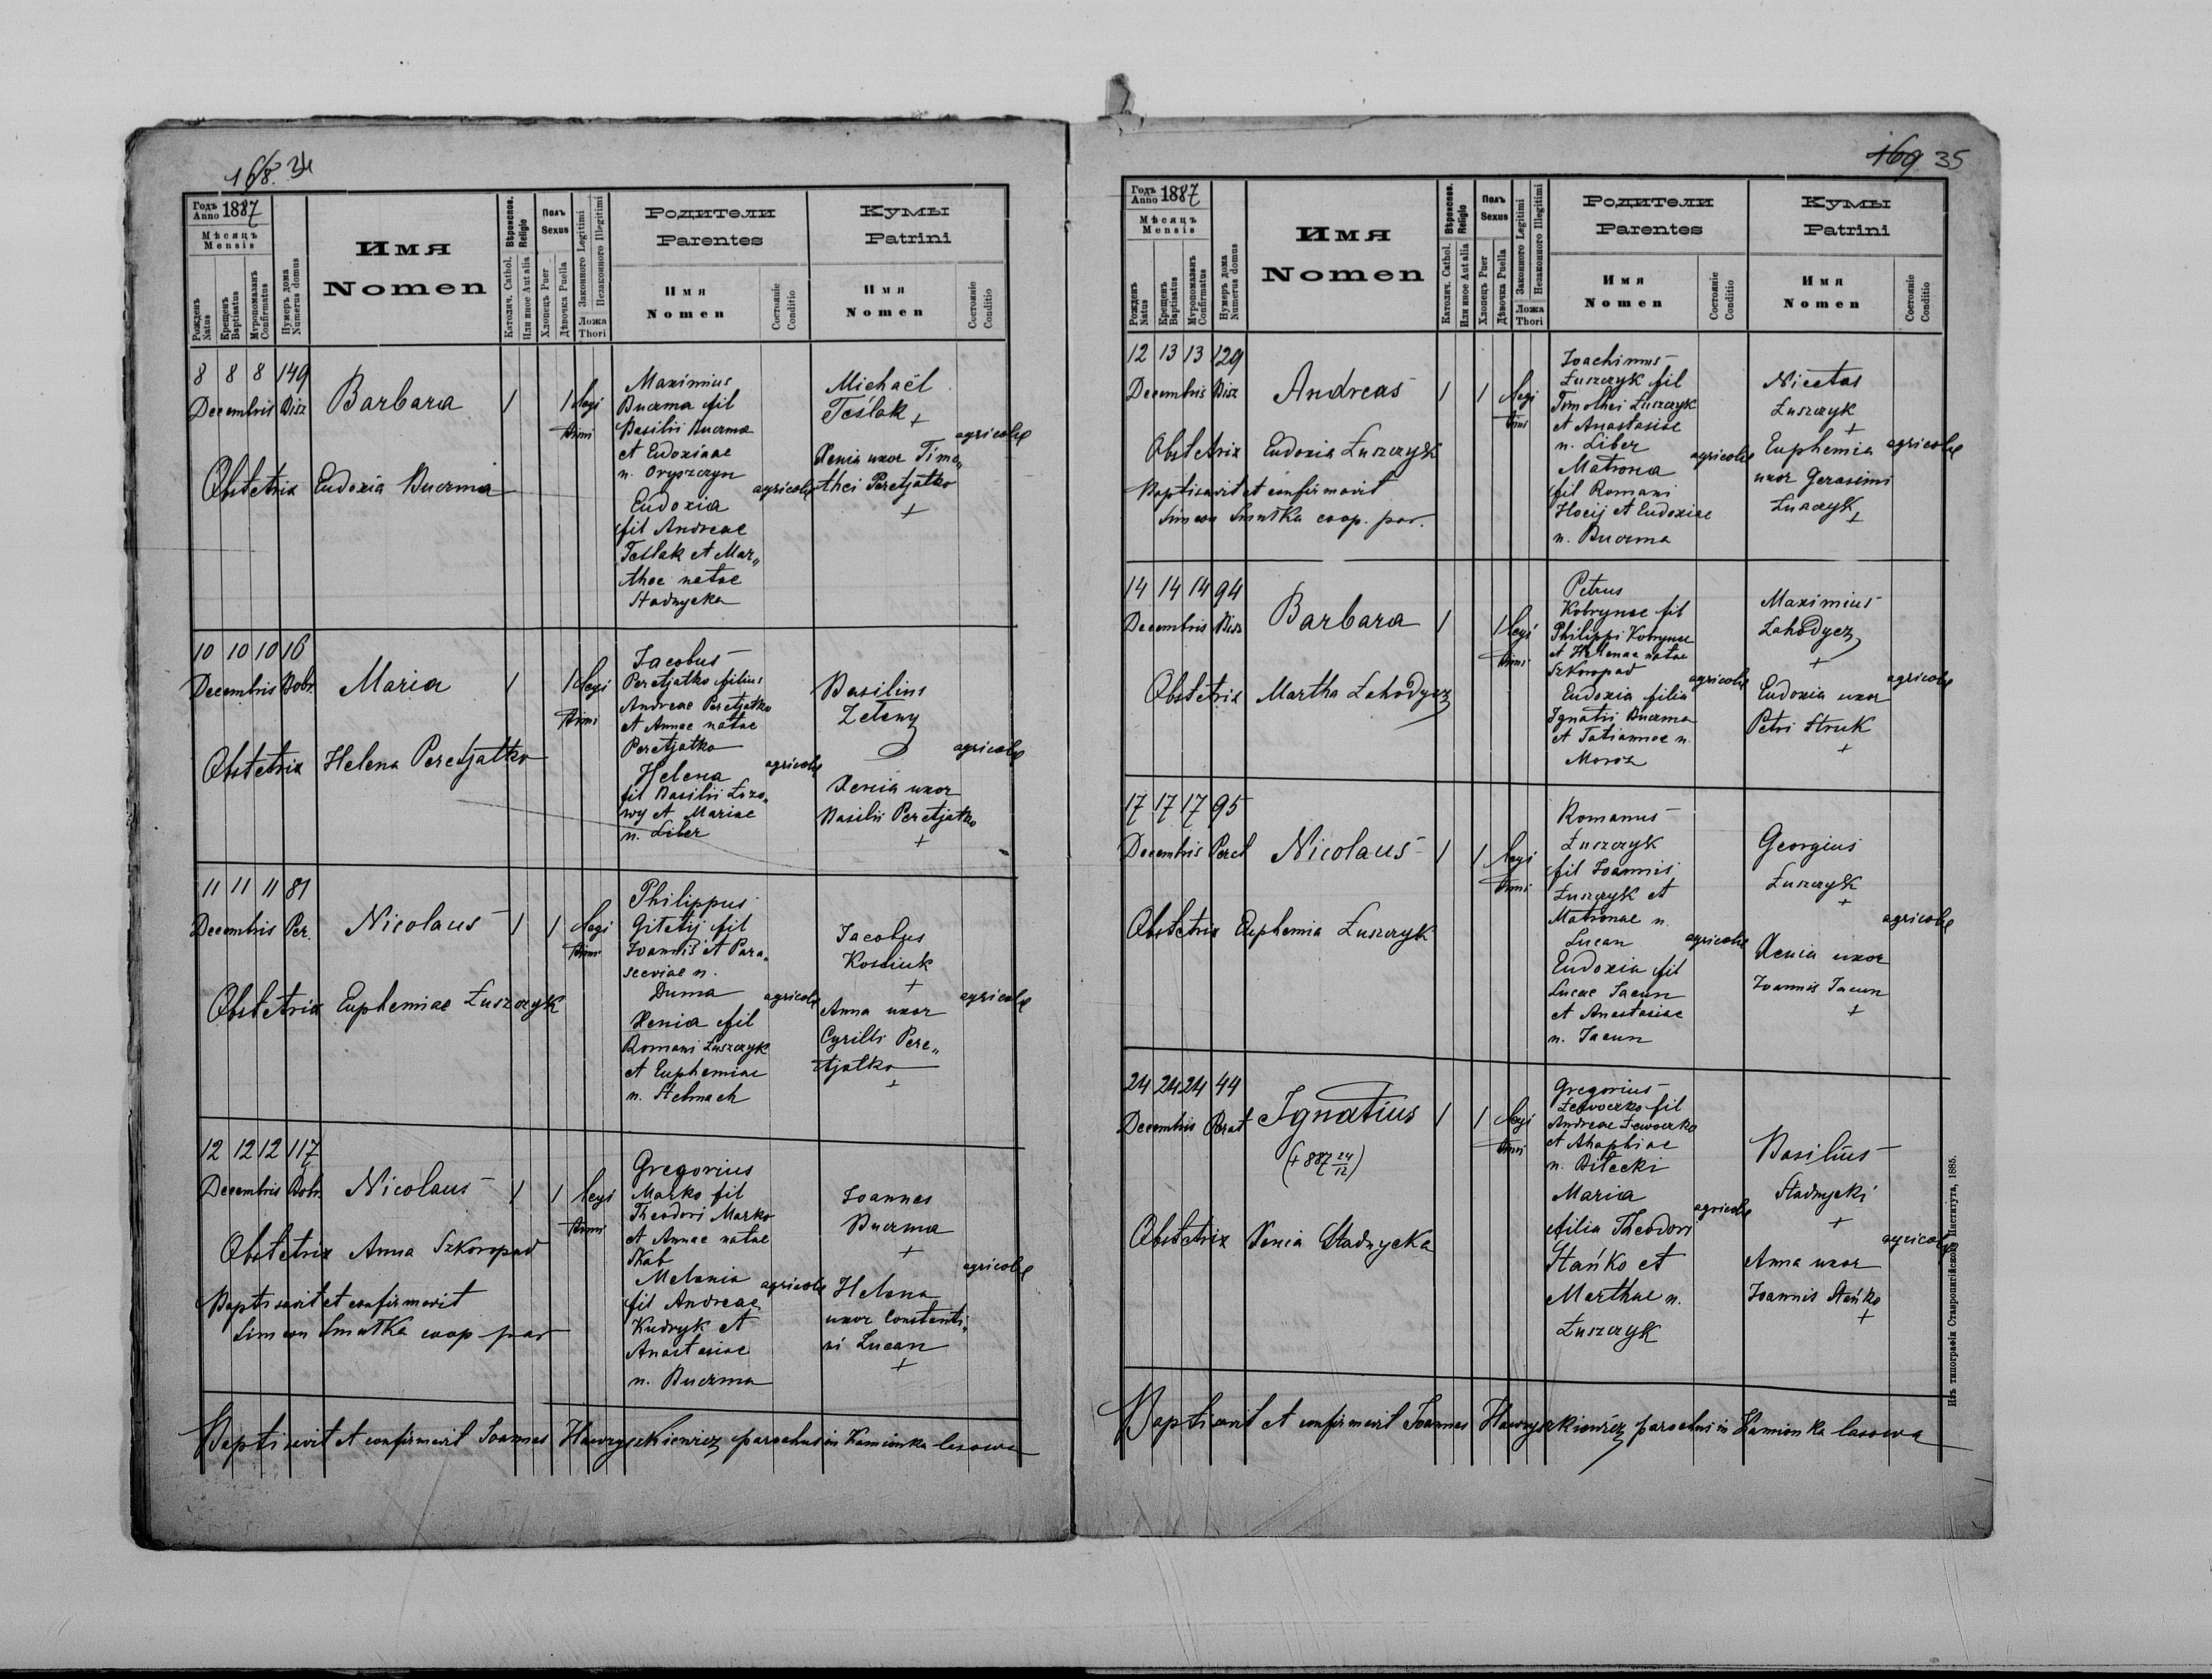 168. 34
Годъ Anno 1887
Мѣсяцъ Mensis
Рожденъ Natus
Крещенъ Baptisatus
Мѵропомазанъ Confirmatus
Нумеръ дома Numerus domus
Имя
Nomen
Вѣроиспов. Religio
Католич. Cathol.
Или иное Aut alia
Полъ Sexus
Хлопецъ Puer
Дѣвочка Puella
Законного Legitimi
Незаконного Illegitimi
Ложа Thori
Родители
Parentes
Имя
Nomen
Состояніе Conditio
Кумы
Patrini
Имя
Nomen
Состояніе Conditio
8 8 8 149
Decembris Bisz
Barbara 1 1 legi
timi
Obstetrix Eudoxia Buczma
Maximius
Buczma fil
Basilii Buczma
et Eudoxiae
n. Oryszczyn
Eudoxia
fil Andreae
Teslak et Mar„
thae natae
Stadnycka
agricolae
Michaël
Teslak
+
Xenia uxor Timo„
thei Peretjatko
+
agricolae
10 10 10 16
Decembris Bobr.
Maria 1 1 legi
timi
Obstetrix Helena Peretjatko
Jacobus
Peretjatko filius
Andreae Peretjatko
et Annae natae
Peretjatko
Helena
fil Basilii Łozo„
wy et Mariae
n. Liber
agricolae
Basilius
Zełeny
Xenia uxor
Basilii Peretjatko
+
agricolae
11 11 11 81
Decembris Per.
Nicolaus 1 1 legi
timi
Obstetrix Euphemiae Łuszczyk
Philippus
Gitetij fil
Joannis et Para„
sceviae n.
Duma
Xenia fil
Romani Łuszczyk
et Euphemiae
n. Stelmach
agricolae
Jacobus
Kostiuk
+
Anna uxor
Cyrilli Pere„
tjatko
+
agricolae
12 12 12 117
Decembris Bobr.
Nicolaus 1 1 legi
timi
Obstetrix Anna Szkoropad
Baptisavit et confirmavit
Simeon Smutka coop. par
Gregorius
Marko fil
Theodori Marko
et Annae natae
Skab
Melania
fil Andreae
Kudryk et
Anastasiae
n. Buczma
agricolae
Joannes
Buczma
+
Helena
uxor Constanti„
ni Lucan
+
agricolae
Baptisavit et confirmavit Joannes Hawryszkiewicz parochus in Kamionka lasowa
169 35
Годъ Anno 1887
Мѣсяцъ Mensis
Рожденъ Natus
Крещенъ Baptisatus
Мѵропомазанъ Confirmatus
Нумеръ дома Numerus domus
Имя
Nomen
Вѣроиспов. Religio
Католич. Cathol.
Или иное Aut alia
Полъ Sexus
Хлопецъ Puer
Дѣвочка Puella
Законного Legitimi
Незаконного Illegitimi
Ложа Thori
Родители
Parentes
Имя
Nomen
Состояніе Conditio
Кумы
Patrini
Имя
Nomen
Состояніе Conditio
12 13 13 129
Decembris Bisz
Andreas 1 1 legi
timi
Obstetrix Eudoxia Łuszczyk
Baptisavit et confirmavit
Simeon Smutka coop. par.
Joachimus
Łuszczyk fil
Timothei Łuszczyk
et Anastasiae
n. Liber
Matrona
fil Romani
Hocij et Eudoxiae
n. Buczma
agricolae
Nicetas
Łuszczyk
+
Euphemia
uxor Gerasimi
Łuszczyk
+
agricolae
14 14 14 94
Decembris Bisz
Barbara 1 1 legi
timi
Obstetrix Martha Zahodycz
Petrus
Kobrynec fil
Philippi Kobrynec
et Helenae natae
Szkoropad
Eudoxia filia
Ignatii Buczma
et Tatiannae n.
Moroz
agricolae
Maximius
Zahodycz
+
Eudoxia uxor
Petri Struk
+
agricolae
17 17 17 95
Decembris Peret
Nicolaus 1 1 legi
timi
Obstetrix Euphemia Łuszczyk
Romanus
Łuszczyk
fil Joannis
Łuszczyk et
Matronae n.
Lucan
Eudoxia fil
Lucae Jacun
et Anastasiae
n. Jacun
agricolae
Georgius
Łuszczyk
+
Xenia uxor
Joannis Jacun
+
agricolae
24 24 24 44
Decembris Perat
Ignatius 1 1 legi
timi
(+ 887 24/12)
Obstetrix Xenia Stadnycka
Gregorius
Łewoczko fil
Andreae Łewoczko
et Ahaphiae
n. Biłecki
Maria
filia Theodori
Stańko et
Marthae n.
Łuszczyk
agricolae
Basilius
Stadnycki
+
Anna uxor
Joannis Stańko
+
agricolae
Baptisavit et confirmavit Joannes Hawryszkiewicz parochus in Kamionka lasowa
Изъ типографіи Ставропигійского Института, 1885.